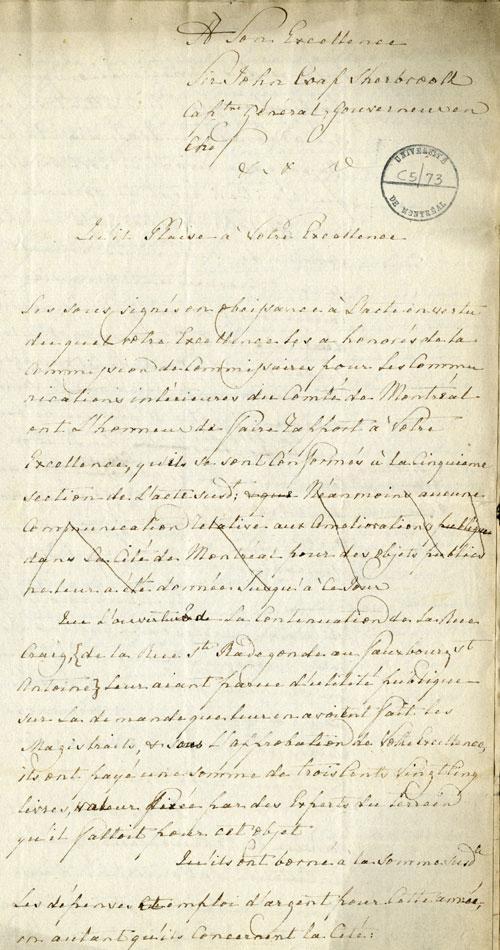 A Son Excellence
Sir John Coap Sherbrooke
Captne Général, Gouverneur en
Chef
& & &
UNIVERSITÉ
C5/73
DE MONTRÉAL
Qu'il Plaise à Votre Excellence
Les sous signés en obeissance à L'acte en vertu
duquel votre Excellence les a honorés de la
Commission de Commissaires pour les Commu
nications intérieures du Comté de Montréal
ont L'honneur de faire Rapport à Votre
Excellence, qu'ils se sont Conformés à la Cinquieme
section de L'acte susd: Néanmoins aucune
Communication Relative aux Améliorations publique
dans la Cité de Montréal pour des objets publics
ne leur a été donnée Jusqu'à ce Jour
Que L'ouverture de la Continuation de la Rue
Craig, & de la Rue Ste Radegonde au Fauxbourg St
Antoine, leur aiant parue d'utilité publique
sur la demande que leur en avoient fait les
Magistrats, & sous L'approbation de Votre Excellence,
ils ont payé une somme de trois Cents vingt Cinq
livres, valeur fixée par des Experts du terrein
qu'il falloit pour cet objet
Qu'ils ont borné à la Somme susde
Les dépenses et emploi d'argent pour cette année,
en autant qu'ils concernent la Cité: